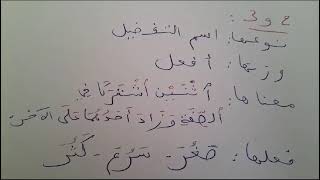 2 و 3 :
نوعها: اسم التفضيل
وزنها: أفعل
معناها: أثنين أشتركا في
الصفة وزاد أحدهما على الآخر
فعلها: صَغُرَ - سَرُعَ - كَثُرَ